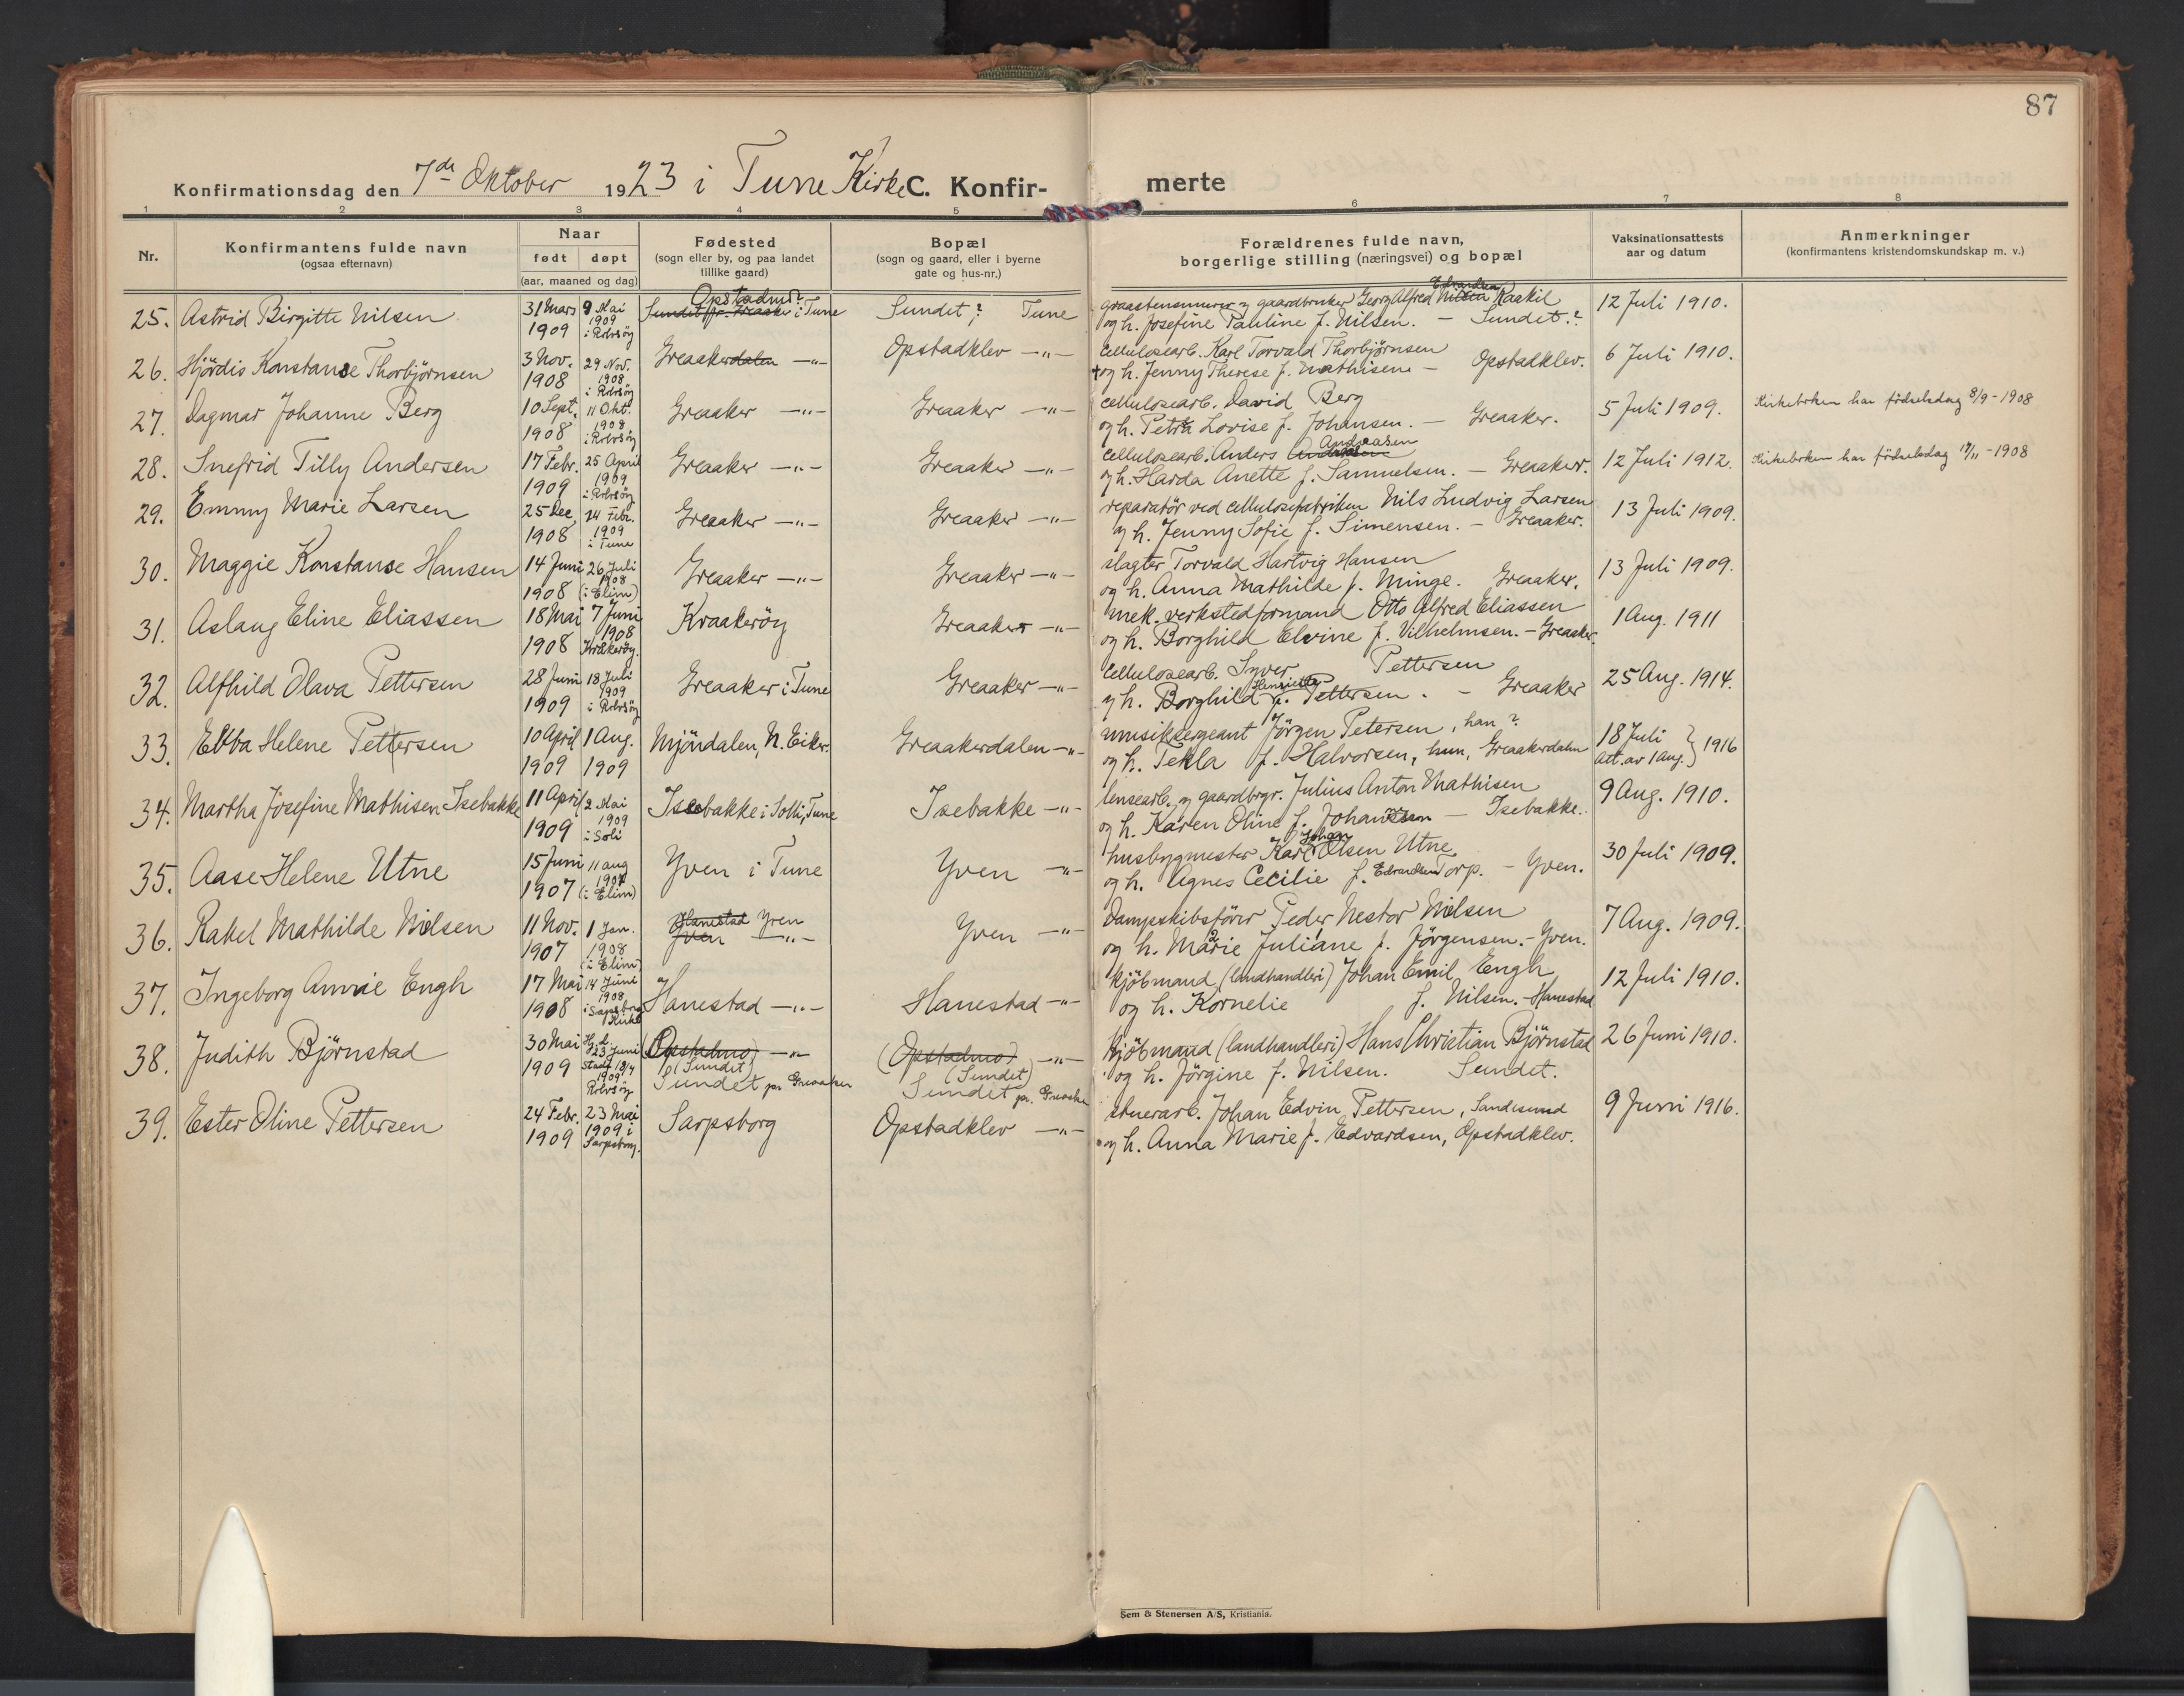 87
Konfirmationsdag den 7de Oktober 1923 i Tune Kirke C. Konfir- merte
1 2 3 4 5 6 7 8
Nr.
Konfirmantens fulde navn
(ogsaa efternavn)
Naar
født døpt
(aar, maaned og dag)
Fødested
(sogn eller by, og paa landet
tillike gaard)
Bopæl
(sogn og gaard, eller i byerne
gate og hus-nr.)
Forældrenes fulde navn,
borgerlige stilling (næringsvei) og bopæl
Vaksinationsattests
aar og datum
Anmerkninger
(konfirmantens kristendomskundskap m. v.)
25. Astrid Birgitte Nilsen 31 Mars 1909 9 Mai 1909 i Rolvsöy Opstadmo? Sundet pr. Greaaker i Tune Sundet? Tune
gaardbruker Georg Alfred Nilsen Edvardsen Kaakil
og h. Josefine Pauline f. Nilsen. — Sundet? 12 Juli 1910.
26. Hjördis Konstanse Thorbjörnsen 3 Nov. 1908 29 Nov. 1908 i Rolvsöy Greaakerdalen —"— Opstadklev —"—
cellulosearb. Karl Torvald Thorbjørnsen
+ og h. Jenny Therese f. Mathisen — Opstadklev. 6 Juli 1910.
27. Dagmar Johanne Berg 10 Sept. 1908 11 Okt. 1908 i Rolvsöy Greaaker —"— Greaaker —"—
cellulosearb. David Berg
og h. Petra Lovise f. Johansen. — Greaaker. 5 Juli 1909. Kirkeboken har födselsdag 8/9 - 1908
28. Snefrid Tilly Andersen 17 Febr. 1909 25 April 1909 i Rolvsöy Greaaker —"— Greaaker —"—
cellulosearb. Anders Andreasen
og h. Harda Anette f. Samuelsen. — Greaaker. 12 Juli 1912. Kirkeboken har födselsdag 17/11 - 1908
29. Emmy Marie Larsen 25 Dec. 1908 14 Febr. 1909 i Tune Greaaker —"— Greaaker —"—
reparatör ved cellulosefabriken Nils Ludvig Larsen
og h. Jenny Sofie f. Simensen. — Greaaker. 13 Juli 1909.
30. Maggie Konstanse Hansen 14 Juni 1908 26 Juli 1908 (i Elim) Greaaker —"— Greaaker —"—
slagter Torvald Hartvig Hansen
og h. Anna Mathilde f. Minge. Greaaker. 13 Juli 1909.
31. Aslaug Eline Eliassen 18 Mai 1908 7 Juni 1908 Kraakeröy. Kraakeröy Greaaker —"—
mek. verkstedformand Otto Alfred Eliassen
og h. Borghild Elvine f. Vilhelmsen. — Greaaker. 1 Aug. 1911
32. Alfhild Olava Pettersen 28 Juni 1909 18 Juli 1909 i Rolvsöy Greaaker i Tune Greaaker —"—
cellulosearb. Syver Pettersen
og h. Borghild Henriette f. Pettersen. — Greaaker 25 Aug. 1914.
33. Ebba Helene Pettersen 10 April 1909 1 Aug. 1909 Mjöndalen, N. Eiker. Greaakerdalen —"—
musiksergeant Jörgen Petersen, han?
og h. Tekla f. Halvorsen, hun, Greaakerdalen 18 Juli att. av 1 Aug. } 1916
34. Martha Josefine Mathisen Isebakke 11 April 1909 2 Mai 1909 i Soli Isebakke i Solli, Tune Isebakke —"—
lensearb. og gaardbrgr. Julius Anton Mathisen
og h. Karen Oline f. Johansen — Isebakke. 9 Aug. 1910.
35. Aase Helene Utne 15 Juni 1907 11 aug 1907 (i Elim) Yven i Tune Yven —"—
husbygmester Karl Johan Olsen Utne
og h. Agnes Cecilie f. Edvardsen Torp. — Yven. 30 Juli 1909.
36. Rakel Mathilde Nilsen 11 Nov. 1907 1 Jan. 1908 (i Elim) Hanestad Yven Yven —"— Yven —"—
Dampskibsförer Peder Nestor Nilsen
og h. Marie Juliane f. Jörgensen. — Yven. 7 Aug. 1909.
37. Ingeborg Annie Engh 17 Mai 1908 14 Juni 1908 i Sarpsborg Kirke Hanestad —"— Hanestad —"—
kjöbmand (landhandleri) Johan Emil Engh
og h. Kornelie f. Nilsen. — Hanestad 12 Juli 1910.
38. Judith Björnstad 30 Mai 1909 Hj.d. 23 Juni stadf. 18/7 1909 Rolvsöy (Opstadmo) —"— (Sundet) Sundet pr Greaaker (Opstadmo) —"— (Sundet) Sundet pr. Greaaker
Kjöbmand (landhandleri) Hans Christian Björnstad
og h. Jörgine f. Nilsen. Sundet. 26 Juni 1910.
39. Ester Oline Pettersen 24 Febr. 1909 23 Mai 1909 i Sarpsborg. Sarpsborg Opstadklev —"—
stuerarb. Johan Edvin Pettersen, Sandesund
og h. Anna Marie f. Edvardsen, Opstadklev. 9 Juni 1916.
Sem & Stenersen A/S, Kristiania.